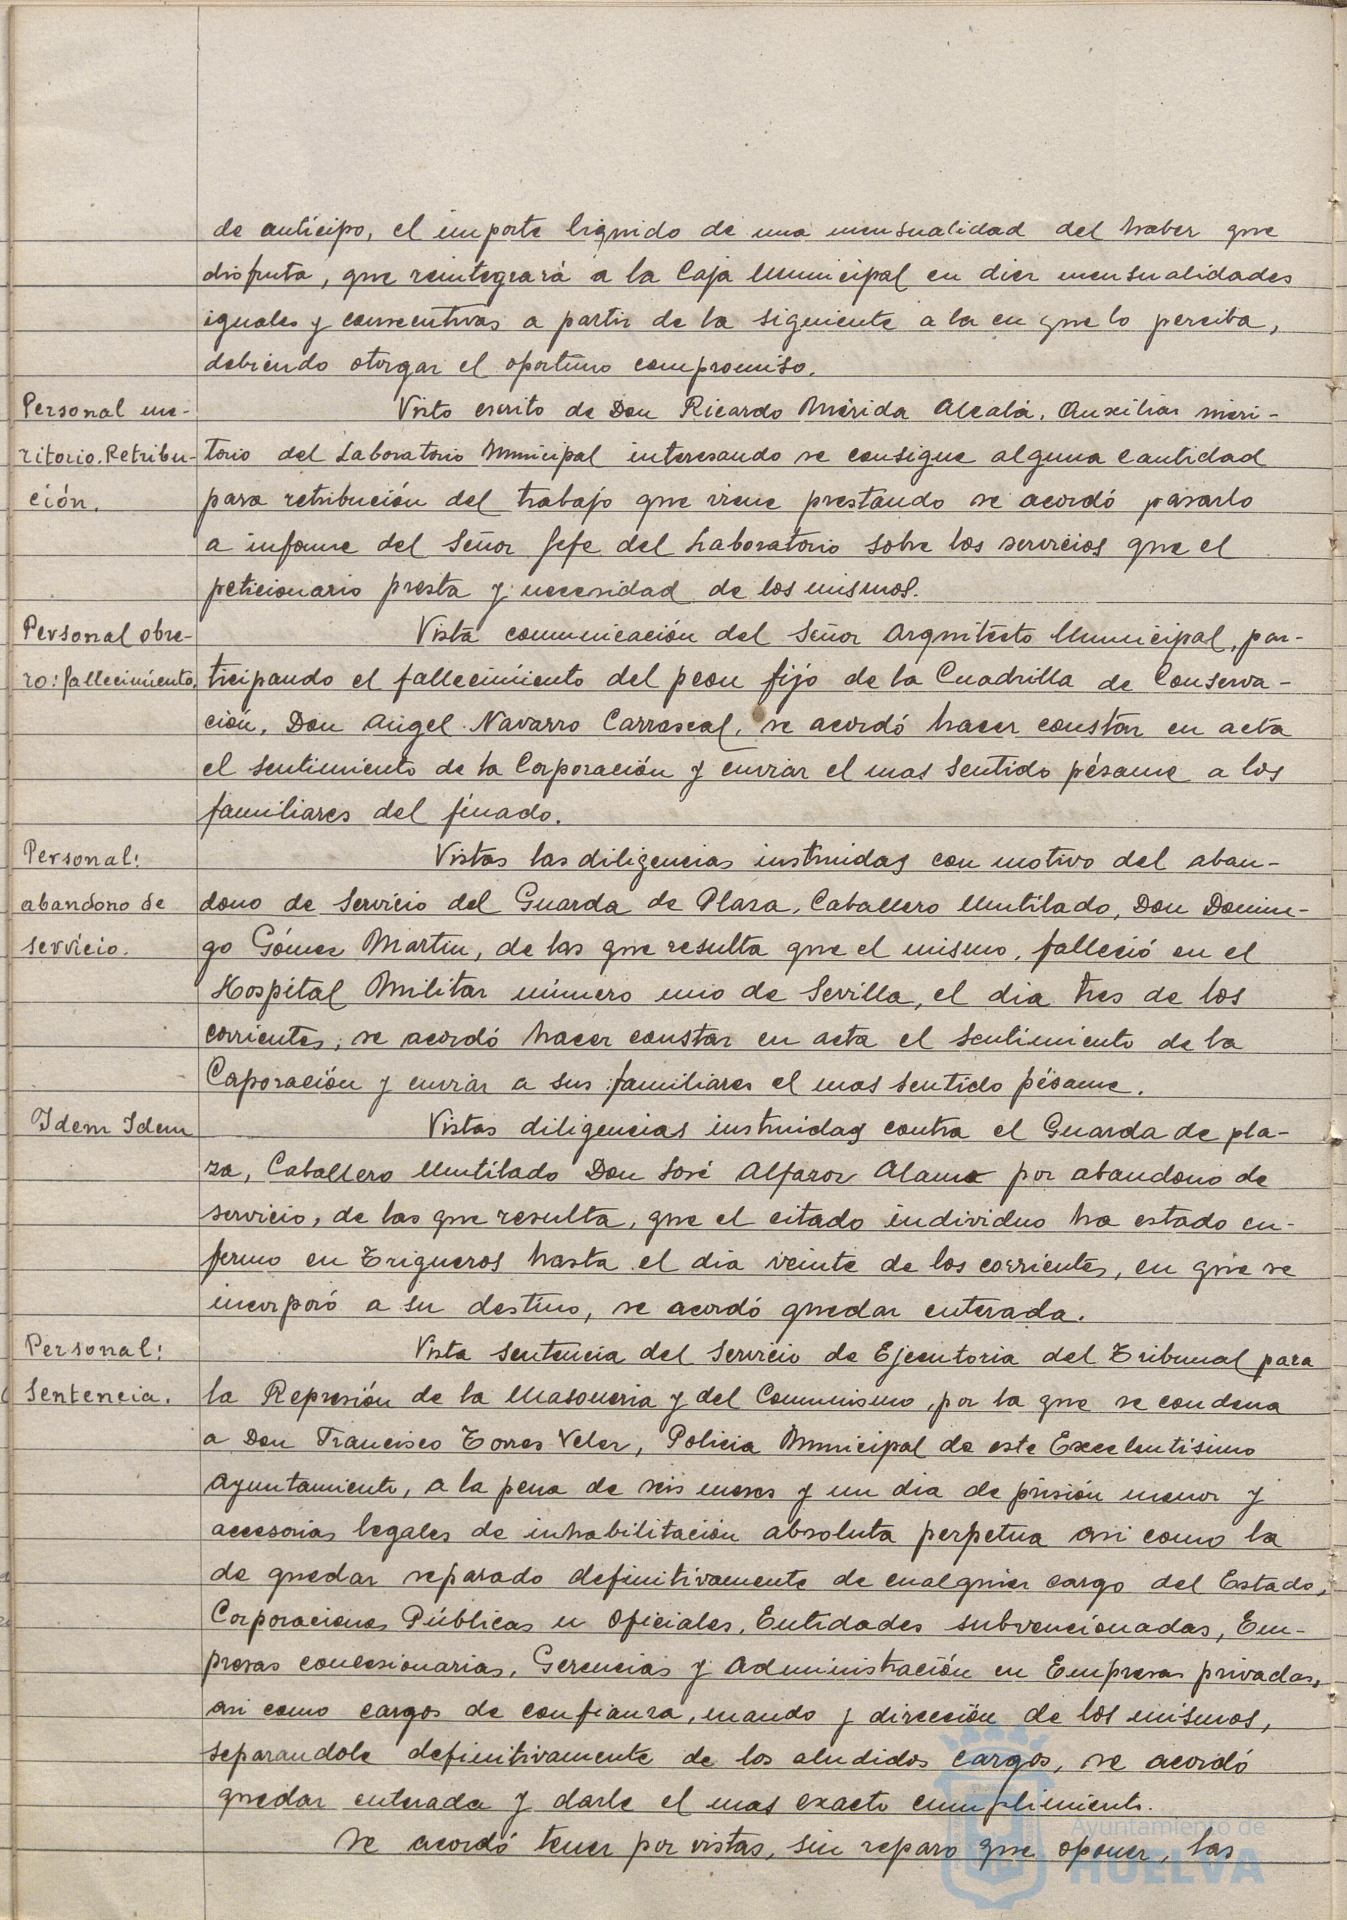 de anticipo, el importe liquido de una mensualidad del haber que
disfruta, que reintegrará a la Caja Municipal en diez mensualidades
iguales y consecutivas a partir de la siguiente a la en que lo perciba,
debiendo otorgar el oportuno compromiso.
Personal me-
ritorio. Retribu-
ción.
Visto escrito de Don Ricardo Mérida Alcalá, Auxiliar meri-
torio del Laboratorio Municipal interesando se consigne alguna cantidad
para retribución del trabajo que viene prestando se acordó pasarlo
a informe del Señor Jefe del Laboratorio sobre los servicios que el
peticionario presta y necesidad de los mismos.
Personal obre-
ro: fallecimiento.
Vista comunicación del Señor Arquitecto Municipal, par-
ticipando el fallecimiento del peon fijo de la Cuadrilla de Conserva-
ción, Don Angel Navarro Carrascal, se acordó hacer constar en acta
el sentimiento de la Corporación y enviar el mas sentido pésame a los
familiares del finado.
Personal:
abandono de
servicio.
Vistas las diligencias instruidas con motivo del aban-
dono de Servicio del Guarda de Plaza, Caballero Mutilado, Don Domin-
go Gómez Martin, de las que resulta que el mismo, falleció en el
Hospital Militar número uno de Sevilla, el dia tres de los
corrientes, se acordó hacer constar en acta el sentimiento de la
Corporación y enviar a sus familiares el mas sentido pésame.
Idem Idem
Vistas diligencias instruidas contra el Guarda de pla-
za, Caballero Mutilado Don José Alfaror Alamo por abandono de
servicio, de las que resulta, que el citado individuo ha estado en-
fermo en Trigueros hasta el dia veinte de los corrientes, en que se
incorporó a su destino, se acordó quedar enterada.
Personal:
Sentencia.
Vista sentencia del Servicio de Ejecutoria del Tribunal para
la Represión de la Masoneria y del Comunismo, por la que se condena
a Don Francisco Torres Velez, Policia Municipal de este Excelentisimo
Ayuntamiento, a la pena de seis meses y un dia de prisión menor y
accesorias legales de inhabilitación absoluta perpetua asi como la
de quedar separado definitivamente de cualquier cargo del Estado,
Corporaciones Públicas u Oficiales, Entidades subvencionadas, Em-
presas concesionarias, Gerencias y Administración en Empresas privadas,
asi como cargos de confianza, mando y dirección de los mismos,
separandole definitivamente de los aludidos cargos, se acordó
quedar enterada y darle el mas exacto cumplimiento.
Se acordó tener por vistas, sin reparo que oponer, las
Ayuntamiento de
HUELVA